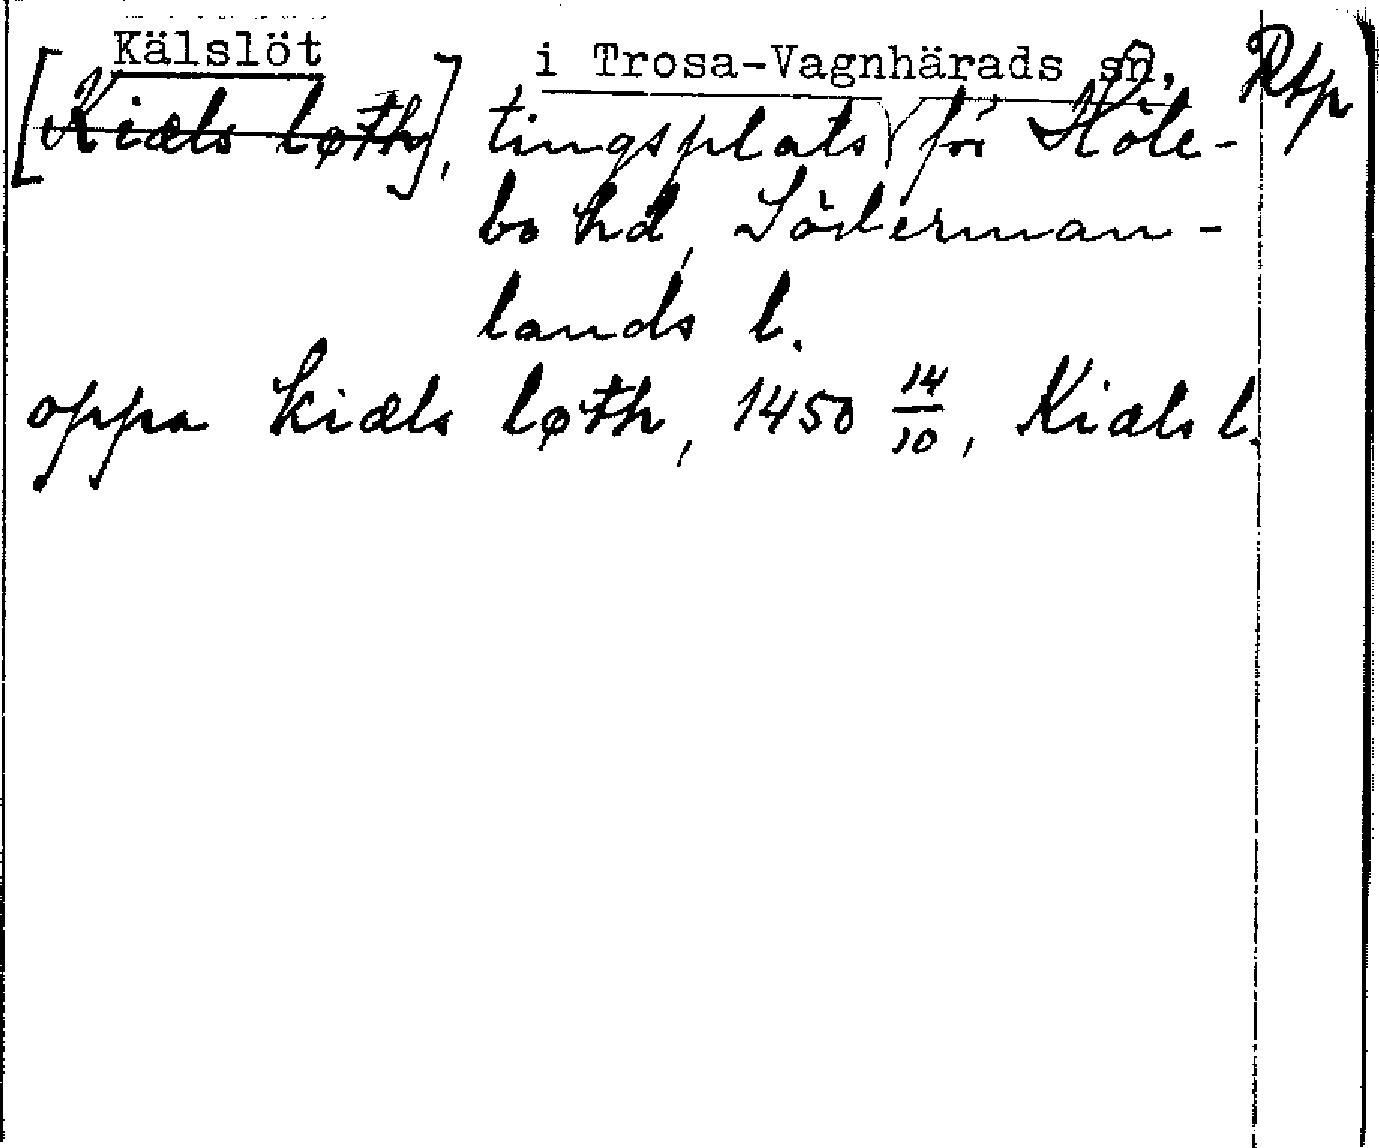 Kälslöt i Trosa-Vagnhärads sn, Rtp
[Kiæls løth], tingsplats för Höle-
bo hd, Söderman-
lands l.
oppa kiæls løth, 1450 14/10, Kiæls l.